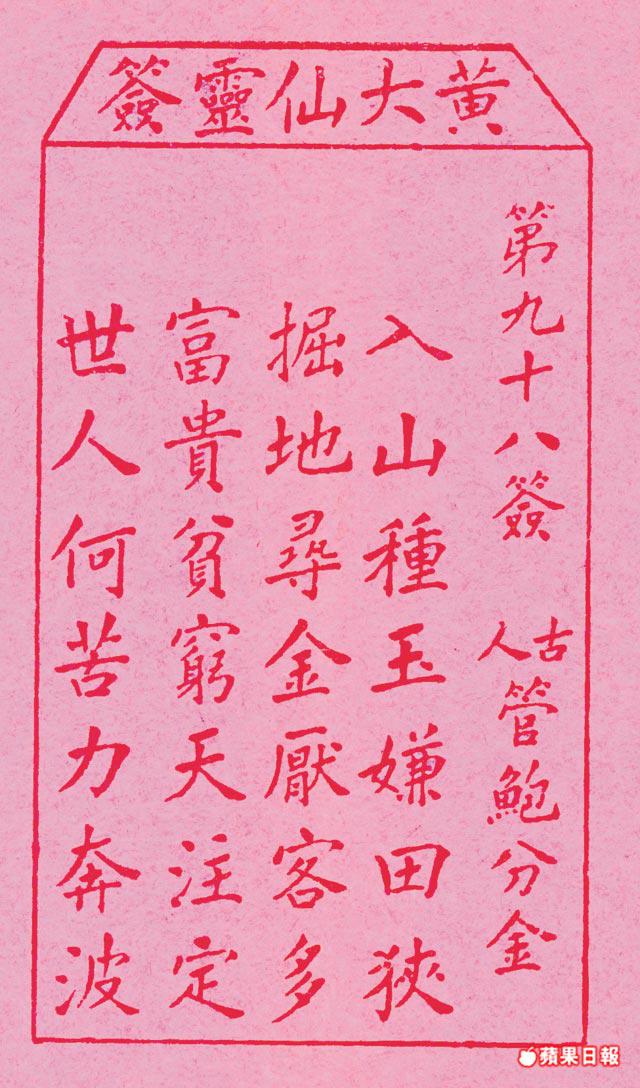 黃大仙靈簽
第九十八簽 古人 管鮑分金
入山種玉嫌田狹
掘地尋金厭客多
富貴貧窮天注定
世人何苦力奔波
蘋果日報